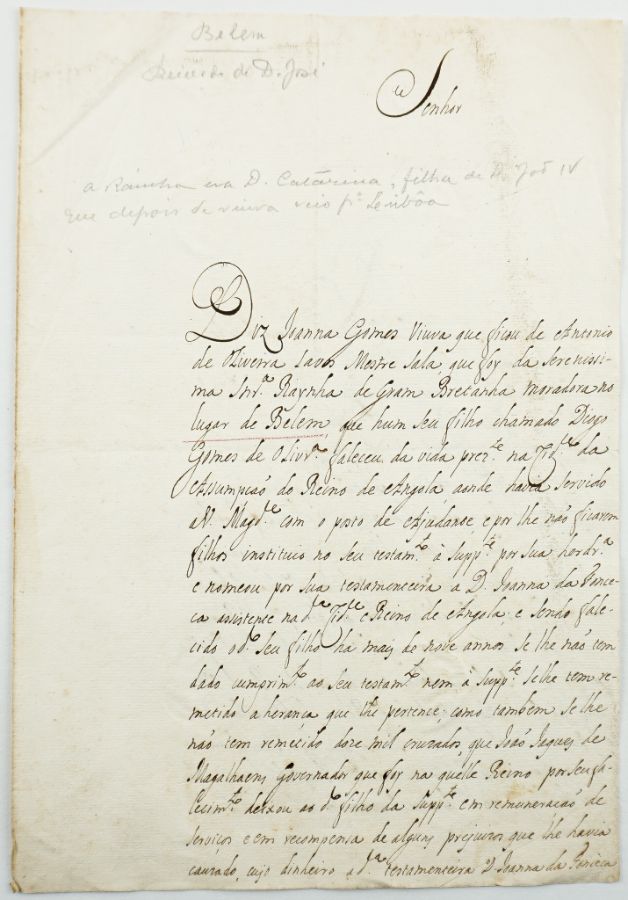 Belem
de D. José
Senhor
a Rainha era D. Catarina, filha de D. João IV
que depois de viuva veio pª Lisbôa
Diz Joanna Gomes Viuva que ficou de Antonio
de Oliverra Lavos Mestre Sala, que foy da Serenissi-
ma Snrª Raynha de Gram Bretanha moradora no
lugar de Belem, que hum seu filho chamado Diogo
Gomes de Olivrª faleceu da vida prezte na Cidde da
Assumpçaõ do Reino de Angola aonde havia servido
a V. Magde com o posto de Ajudante e por lhe naõ ficarem
filhos instituio no seu testamto â Suppte por sua herdrª
e nomeou por sua testamenteira a D. Joanna da Fonce-
ca assistente na dª Cidde e Reino de Angola e sendo fale-
cido o do seu filho ha mais de nove annos se lhe naõ tem
dado cumprimto ao seu testamto nem â Suppte se lhe tem re-
metido a herança que lhe pertence, como tambem se lhe
naõ tem remetido doze mil cruzados, que Joaõ Jaques de
Magalhaens Governador que foy na quelle Reino por seu fa-
lecimto deixou ao do filho da Suppte em remuneraçaõ de
serviços e em recompensa de alguns prejuizos que lhe havia
cauzado, cujo dinheiro a dª testamenteira D. Joanna da Fonceca